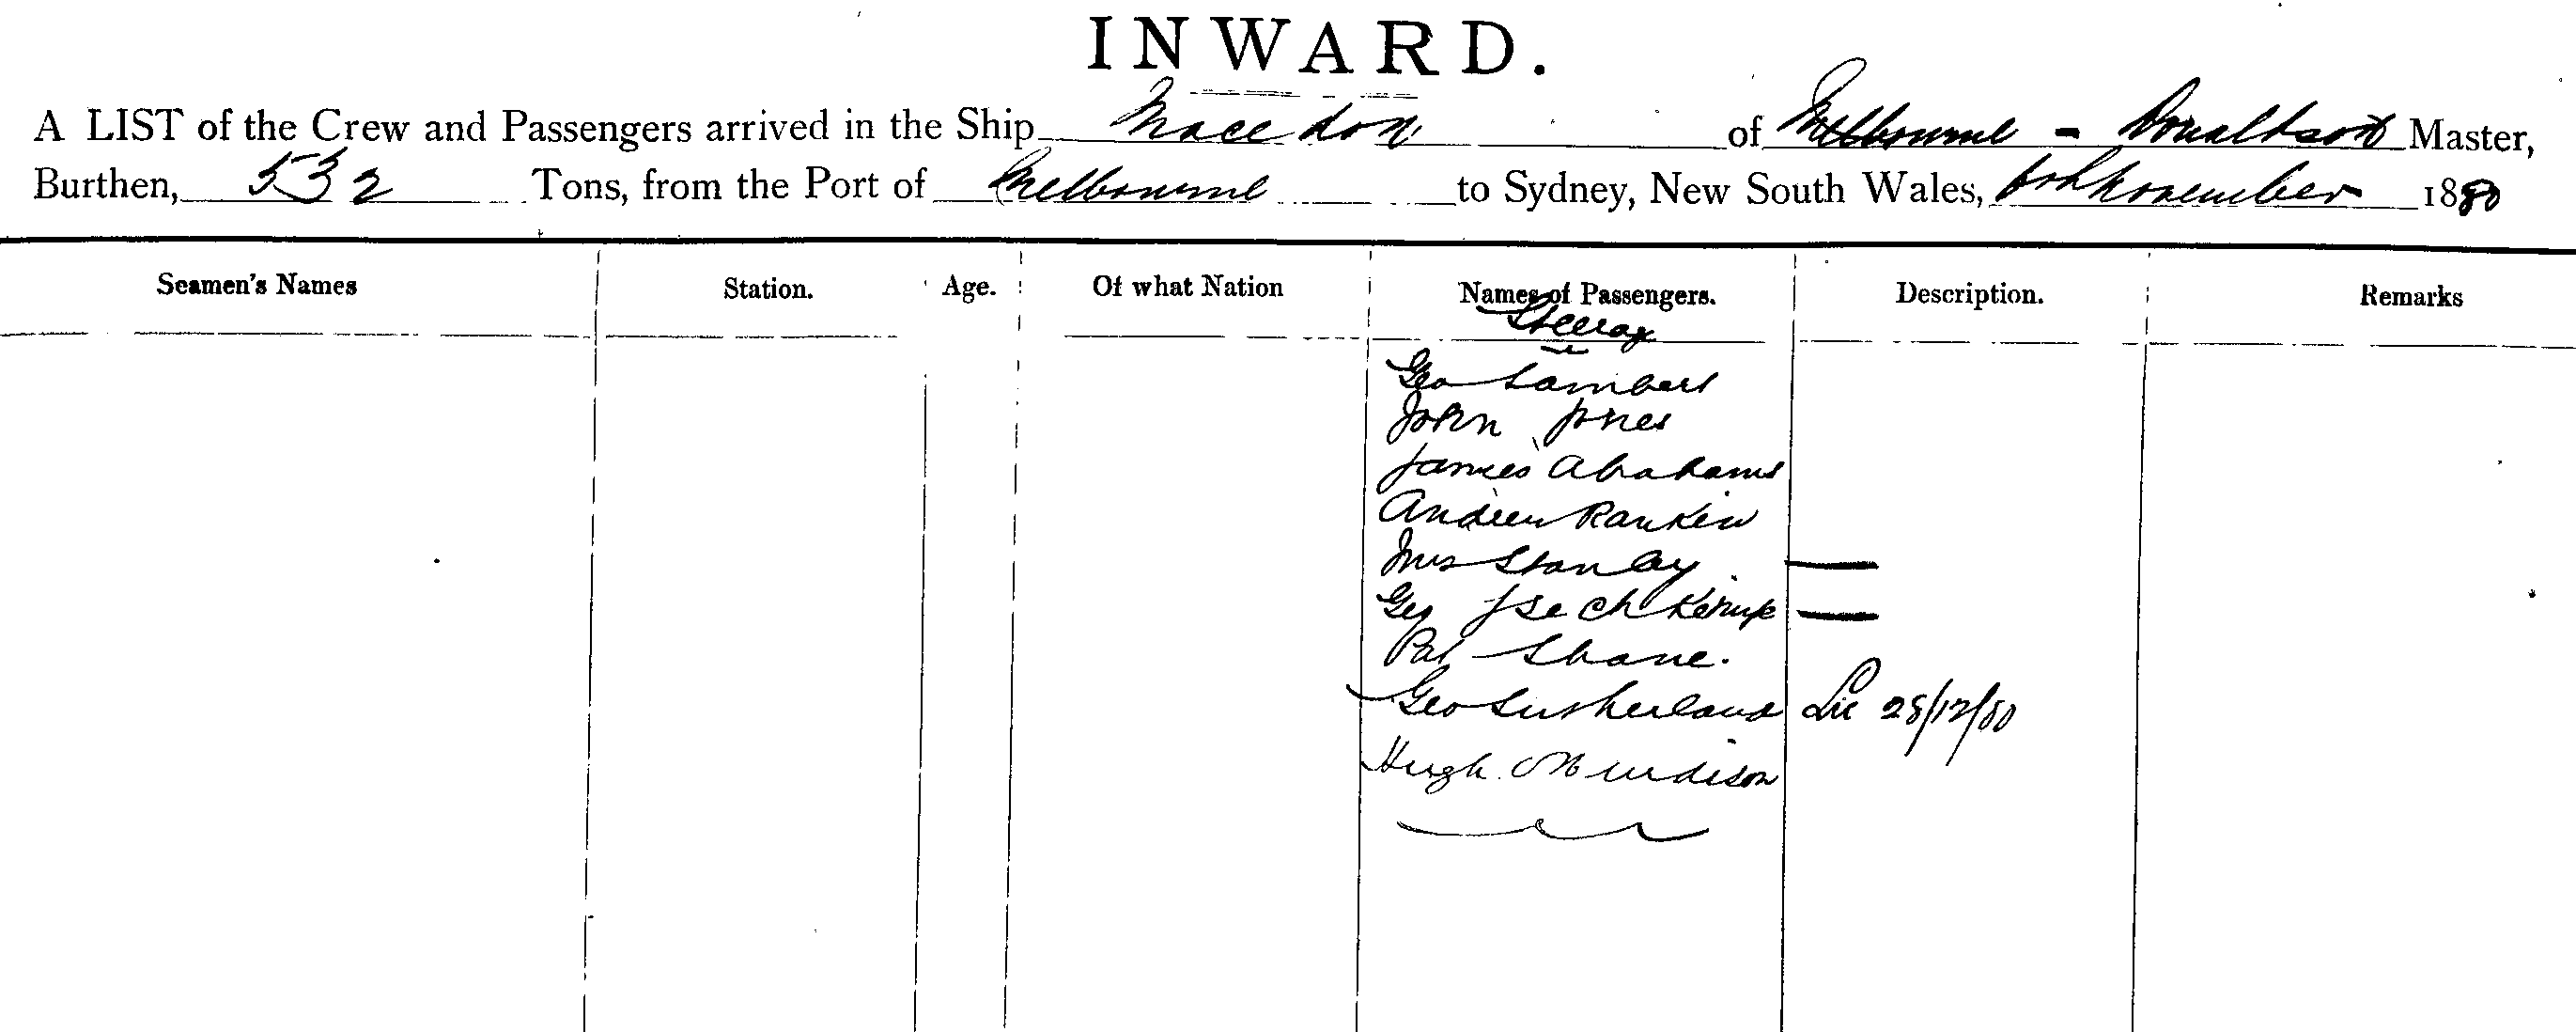 INWARD.
A LIST of the Crew and Passengers arrived in the Ship Macedon of Melbourne - Donaldson Master,
Burthen, 532 Tons, from the Port of Melbourne to Sydney, New South Wales, November 1880
Seamen's Names Station. Age. Of what Nation Names of Passengers. Description. Remarks
Steerage
Geo Lambert
John Jones
James Abrahams
Andrew Rankin
Mrs Stanley —
Geo —
Pat
Geo Sutherland Lic 28/12/80
Hugh